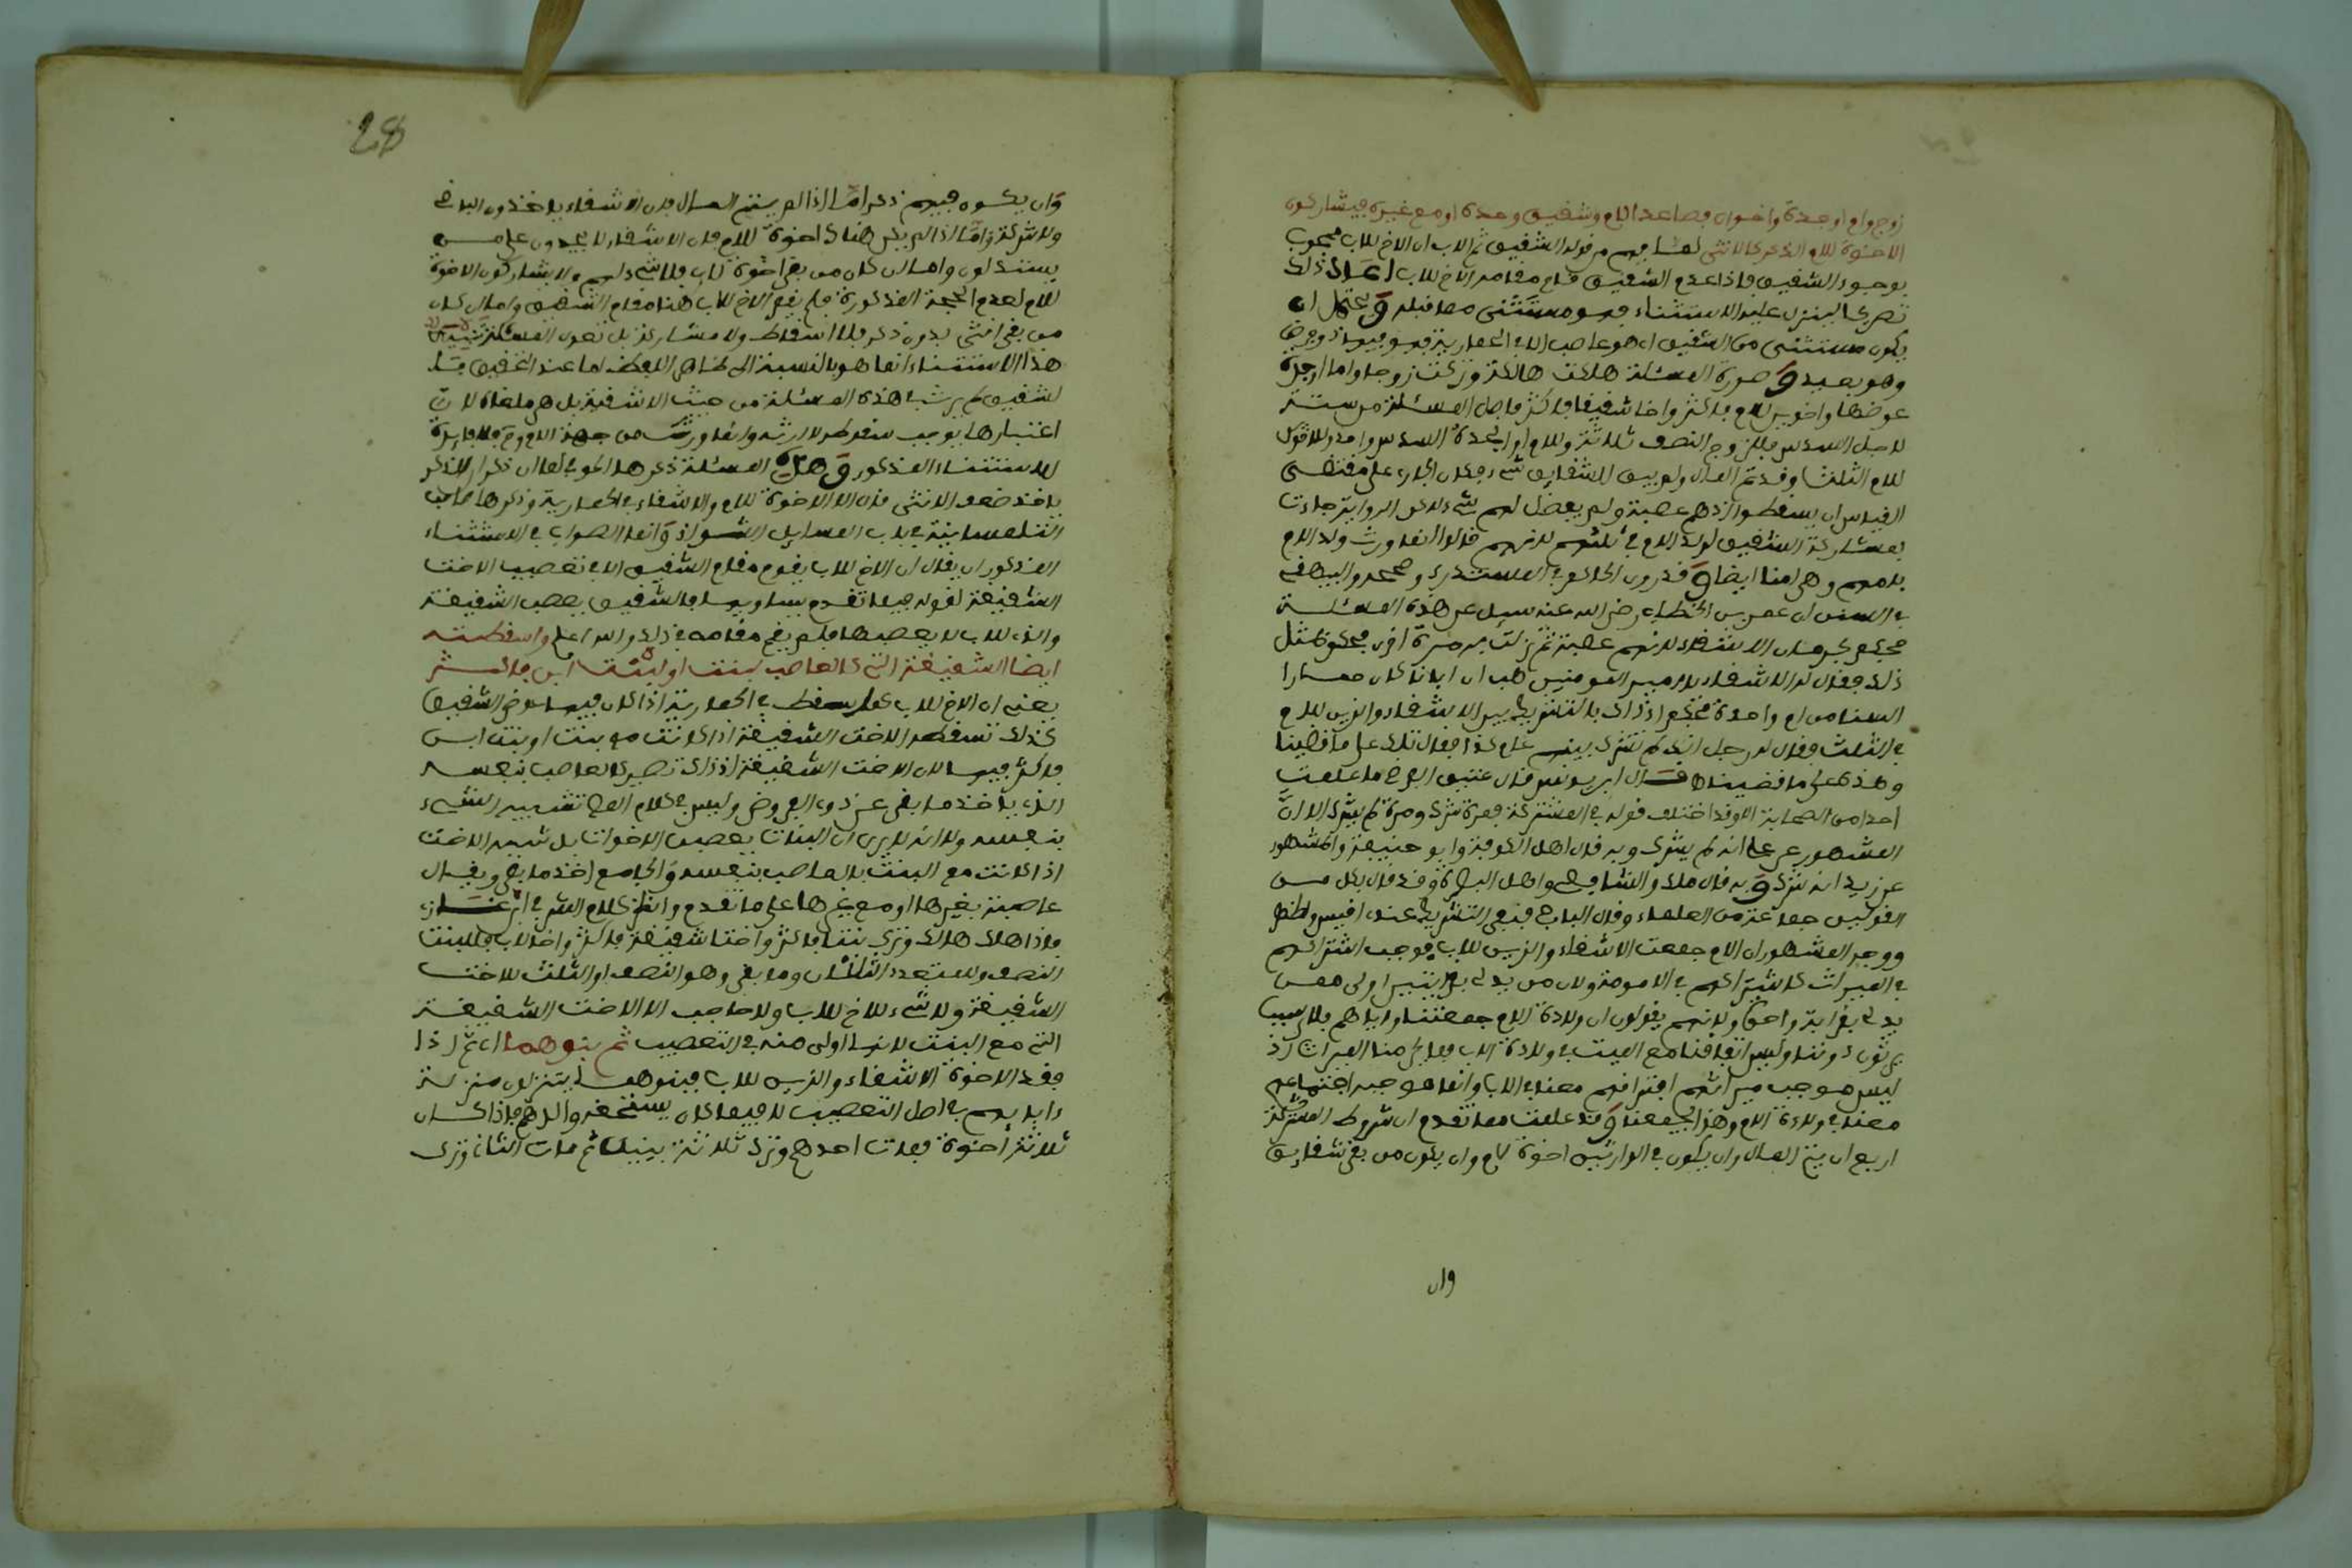 زوج وام او جدة واخوان فصاعدا للام وشقيق وحده او مع غيره فيشاركون
الاخوة للام الذكر كالانثى لما فهم من قوله الشقيق ثم للاب ان الاخ للاب محجوب
بوجود الشقيق فاذا عدم الشقيق قام مقامه الاخ للاب اعاد ذلك
تصريحا لينزل عليه الاستثناء فهو مستثنى مما قبله ويحتمل ان
يكون مستثنى من الشقيق اي هو عاصب الا في الحمارية فهو فيها ذو فرض
وهو بعيد وصورة المسئلة هلكت هالكة وتركت زوجا واما او جدة
عوضها واخوين للام فاكثر واخا شقيقا فاكثر فاصل المسئلة من ستة
لاجل السدس فللزوج النصف ثلاثة وللام او الجدة السدس واحد وللاخوة
للام الثلث وقد تم المال ولم يبق للشقايق شيء فكان الجاري على مقتضى
القياس ان يسقطوا اذ هم عصبة ولم يفضل لهم شيء لاكن الرواية جاءت
بمشاركة الشقيق لولد الام في ثلثهم لانهم قالوا انما ورث ولد الام
بامهم وهي امنا ايضا وقد روى الحاكم في المستدرك وصححه والبيهقي
في السنن ان عمر بن الخطاب رضي الله عنه سيل عن هذه المسئلة
فحكم بحرمان الاشقاء لانهم عصبة ثم نزلت به مرة اخرى فحكم بمثل
ذلك فقال له الاشقاء يا امير المومنين هب ان ابانا كان حمارا
السنا من ام واحدة فحكم اذ ذاك بالتشريك بين الاشقاء والذين للام
في الثلث فقال له رجل انك لم تشرك بينهم عام كذا فقال تلك على ما قضينا
وهذه على ما قضيناها قال ابن يونس قال عتيق الفرضي ما علمت
احدا من الصحابة الا وقد اختلف قوله في المشتركة فمرة شرك ومرة لم يشرك الا ان
المشهور عن علي انه لم يشرك وبه قال اهل الكوفة وابو حنيفة والمشهور
عن زيد انه شرك وبه قال ملك والشافعي واهل البصرة وقد قال بكل من
القولين جماعة من العلماء وقال الباجي فنفي التشريك عندي اقيس واظهر
ووجه المشهور ان الام جمعت الاشقاء والذين للاب فوجب اشتراكهم
في الميراث كاشتراكهم في الامومة ولان من يدلي بقرابتين اولى ممن
يدلي بقرابة واحدة ولانهم يقولون ان ولادة الام جمعتنا واياهم فلاي سبب
يرثون دوننا وليس اتفاقنا مع الميت في ولادة الاب مما يخل منا الميراث اذ
ليس موجب ميراثهم افتراقهم معنا في الاب وانما موجبه اجتماعهم
معنا في ولادة الام وهذا يجمعنا وقد علمت مما تقدم ان شروط المشتركة
اربع ان يتم المال وان يكون في الوارثين اخوة لام وان يكون من بقي شقايق
وان
28
وان يكون فيهم ذكر اما اذا لم يتم المال فان الاشقاء ياخذون الباقي
ولا شركة واما اذا لم يكن هناك اخوة للام فان الاشقاء لا يجدون على من
يستدلون واما ان كان من بقي اخوة لاب فلا شيء لهم ولا يشاركون الاخوة
للام لعدم الحجة المذكورة فلم يقم الاخ للاب هنا مقام الشقيق واما ان كان
من بقي انثى بدون ذكر فلا اسقاط ولا مشاركة بل تعول المسئلة تنبيهان
هذا الاستثناء انما هو بالنسبة الى ظاهر اللفظ اما عند التحقيق فلا
لشقيق لم يرث في هذه المسئلة من حيث الاشقية بل هي ملغاة لان
اعتبارها يوجب سقوط الارث وانما ورث من جهة الام وح فلا فايدة
للاستثناء المذكور وهذه المسئلة ذكرها الحوفي لما ان ذكر ان الذكر
ياخذ ضعف الانثى قال الا الاخوة للام والاشقاء في الحمارية وذكرها صاحب
التلمسانية في باب المسايل الشواذ وانما الصواب في الاستثناء
المذكور ان يقال ان الاخ للاب يقوم مقام الشقيق الا في تعصيب الاخت
الشقيقة لقوله فيما تقدم يساويها فالشقيق يعصب الشقيقة
والذي للاب لا يعصبها فلم يقم مقامه في ذلك والله اعلم واسقطته
ايضا الشقيقة التي كالعاصب لبنت او لبنت ابن فاكثر
يعني ان الاخ للاب كما يسقط في الحمارية اذا كان فيها عوض الشقيق
كذلك تسقطه الاخت الشقيقة اذا كانت مع بنت او بنت ابن
فاكثر فيهما لان الاخت الشقيقة اذ ذاك تصير كالعاصب بنفسه
الذي ياخذ ما بقي عن ذوي الفروض وليس في كلام المص تشبيه الشيء
بنفسه ولا انه لا يرى ان البنات يعصبن الاخوات بل شبه الاخت
اذا كانت مع البنت بالعاصب بنفسه والجامع اخذ ما بقي ويقال
عاصبة بغيرها او مع غيرها على ما تقدم وانظر كلام الشر في اثر غازي
فاذا هلك هالك وترك بنتا فاكثر واختا شقيقة فاكثر واخا لاب فللبنت
النصف وللمتعدد الثلثان وما بقي وهو النصف او الثلث للاخت
الشقيقة ولا شيء للاخ للاب ولا حاجب الا الاخت الشقيقة
التي مع البنت لانها اولى منه في التعصيب ثم بنوهما اي ثم اذا
فقد الاخوة الاشقاء والذين للاب فبنوهما يتنزلون منزلة
ءابايهم في اصل التعصيب لا فيما كان يستحقه والدهم فاذا كان
ثلاثة اخوة فمات احدهم وترك ثلاثة بنين ثم مات الثاني وترك